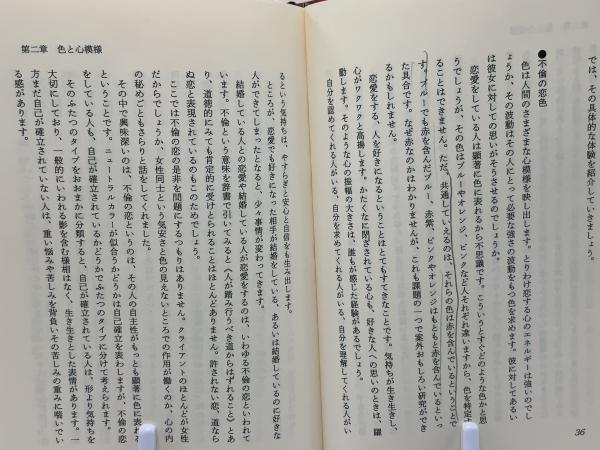 では、その具体的な体験を紹介していきましょう。
●不倫の恋色
色は人間のさまざまな心模様を映し出します。とりわけ恋する心のエネルギーは強いのでし
ょうか、その波動はその人にとって必要な強さの波動をもつ色を求めます。彼に対してあるい
は彼女に対しての思いがそうさせるのでしょうか。
恋愛をしている人は顕著に色に表れるから不思議です。こういうとすぐどのような色かと思
うでしょうが、その色はブルーやオレンジ、ピンクなど人それぞれ違いますから、色を特定す
ることはできません。ただ、共通していえるのは、それらの色は赤を含んでいるということで
す。ブルーでも赤を含んだブルー、赤紫、ピンクやオレンジはもともと赤を含んでいるといっ
た具合です。なぜ赤なのかはわかりませんが、これも課題の一つで案外おもしろい研究ができ
るかもしれません。
恋愛をする、人を好きになるということはとてもすてきなことです。気持ちが生き生きし、
心がワクワクと高揚します。かたくなに閉ざされている心も、好きな人への思いのときは、躍
動します。そのような心の振幅の大きさは、誰もが感じた経験があるでしょう。
自分を認めてくれる人がいる、自分を求めてくれる人がいる、自分を理解してくれる人がい
36
第二章 色と心模様
るという気持ちは、やすらぎと安心と自信をも生み出します。
ところが、恋愛でも好きになった相手が結婚をしている、あるいは結婚しているのに好きな
人ができてしまったとなると、少々事情が変わってきます。
結婚している人との恋愛や結婚している人が恋愛をするのは、いわゆる不倫の恋といわれて
います。不倫という意味を辞書で引いてみると〈人が踏み行うべき道からはずれること〉とあ
り、道徳的にみても肯定的に受けとられることはほとんどありません。許されない恋、道なら
ぬ恋と表現されているのもこのためでしょう。
ここでは不倫の恋の是非を問題にするつもりはありません。クライアントのほとんどが女性
だからでしょうか、女性同士という気安さと色の見えないところでの作用が働くのか、心の内
の秘めごともさらりと話をしてくれました。
その中で興味深いのは、不倫の恋というのは、その人の自主性がもっとも顕著に色に表れる
ということです。ニュートラルカラーが似合うかどうかは自己確立を表わしますが、不倫の恋
をしている人も、自己が確立されているかどうかでふたつのタイプに分けて考えられます。
そのふたつのタイプをおおまかに分類すると、自己が確立されている人は、形より気持ちを
大切にしており、一般的にいわれる影を含む様相はなく、生き生きとした表情があります。一
方まだ自己が確立されていない人は、重い悩みや苦しみを背負いその苦しみの重みに喘いでい
る感があります。